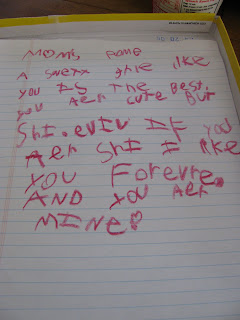 MOM'S POME
A SWETX GHIE LIKE
YOU IS THE BEST.
YOU AER CUTE BUT
SHI. EVIV IF YOU
AER SHI I LIKE
YOU FOREVRE.
AND YOU AER
MINE!